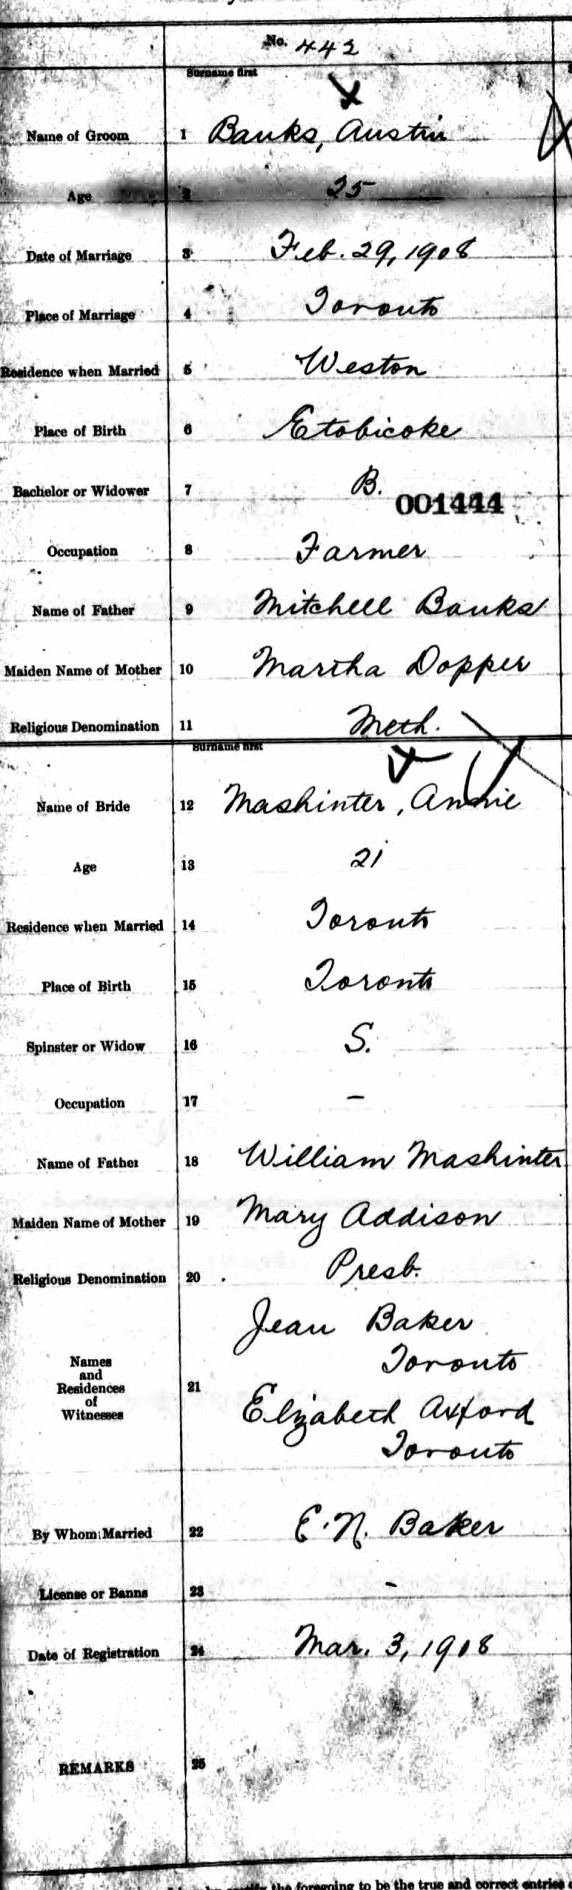 No. 442
Surname first
Name of Groom 1 Banks, Austin
Age 2 25
Date of Marriage 3 Feb. 29, 1908
Place of Marriage 4 Toronto
Residence when Married 5 Weston
Place of Birth 6 Etobicoke
Bachelor or Widower 7 B.
001444
Occupation 8 Farmer
Name of Father 9 Mitchell Banks
Maiden Name of Mother 10 Martha Dopper
Religious Denomination 11 Meth.
Surname first
Name of Bride 12 Mashinter, Annie
Age 13 21
Residence when Married 14 Toronto
Place of Birth 15 Toronto
Spinster or Widow 16 S.
Occupation 17 –
Name of Father 18 William Mashinter
Maiden Name of Mother 19 Mary Addison
Religious Denomination 20 Presb.
Names
and
Residences
of
Witnesses
21
Jean Baker
Toronto
Elizabeth Axford
Toronto
By Whom Married 22 E. N. Baker
License or Banns 23 -
Date of Registration 24 Mar. 3, 1908
REMARKS 25
the foregoing to be the true and correct entries